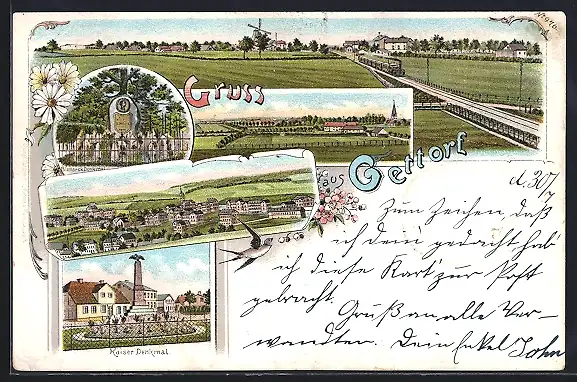 Gruss
aus
Gettorf
Kaiser Denkmal.
d. 30/7
Zum Zeichen daß
ich dein gedacht hab'
ich diese Kart' zur Post
gebracht.
Gruß an alle Ver-
wandten. Dein Enkel John